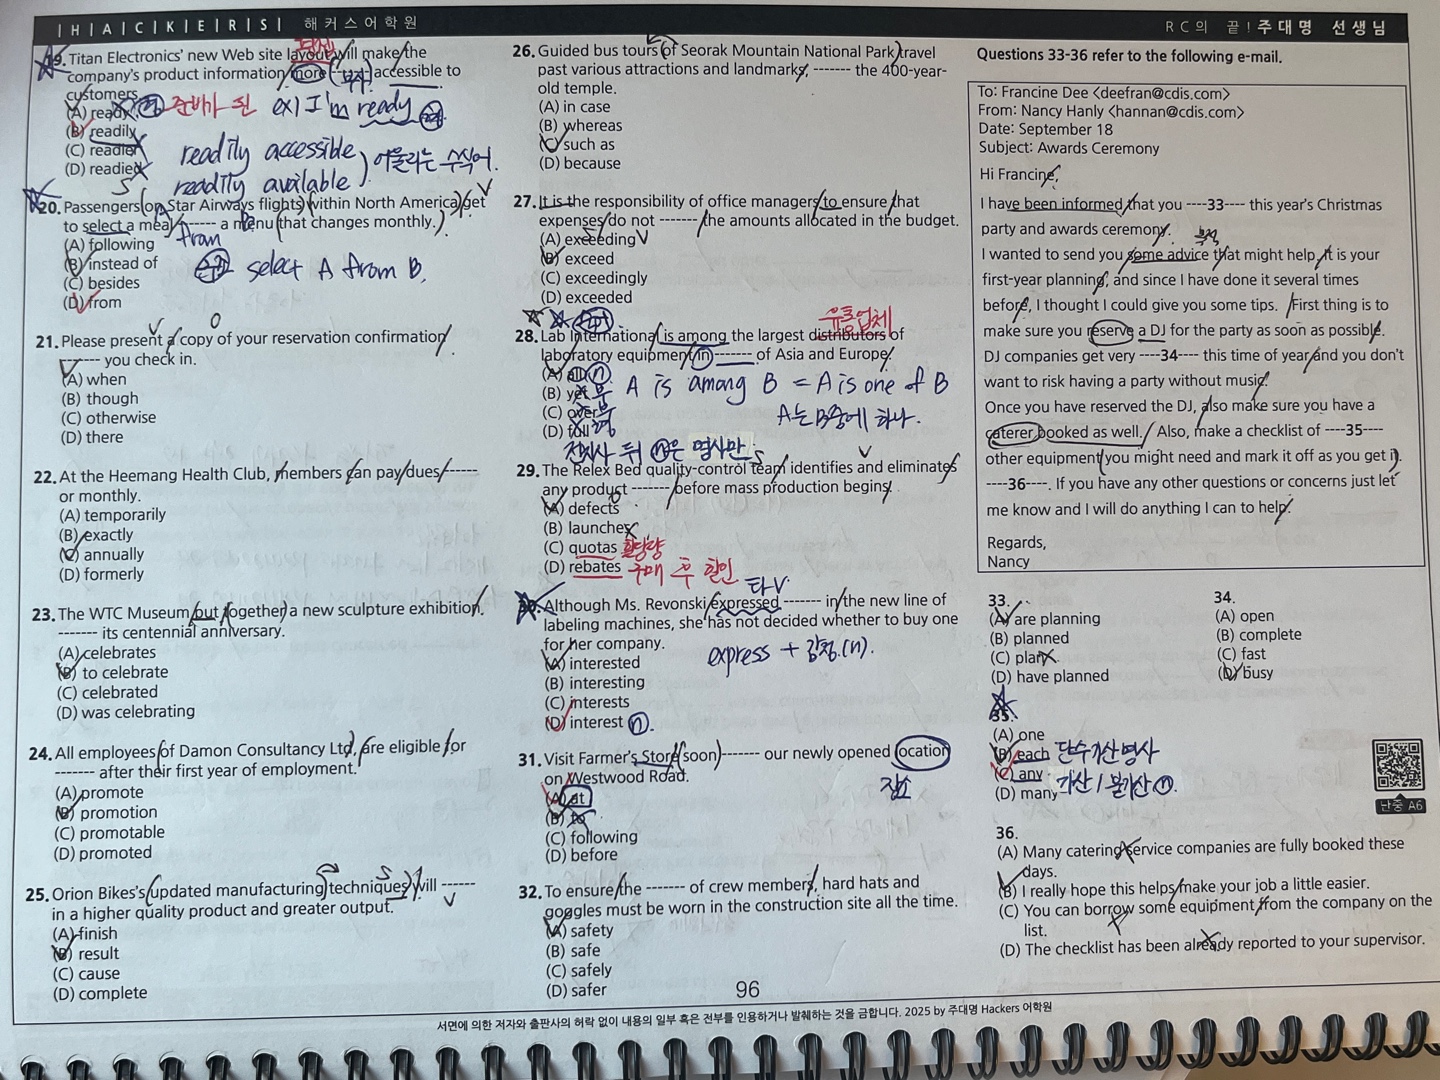 |H|A|C|K|E|R|S| 해커스어학원
RC의 끝! 주대명 선생님
19. Titan Electronics' new Web site layout will make the
company's product information more ------- accessible to
customers.
(A) ready 준비가 된 ex) I'm ready
(B) readily
(C) readier
(D) readies
readily accessible
readily available
어울리는 수식어.
20. Passengers on Star Airways flights within North America get
to select a meal ------- a menu that changes monthly.
from
(A) following
(B) instead of
(C) besides
(D) from
select A from B.
21. Please present a copy of your reservation confirmation
------- you check in.
(A) when
(B) though
(C) otherwise
(D) there
22. At the Heemang Health Club, members can pay dues -------
or monthly.
(A) temporarily
(B) exactly
(C) annually
(D) formerly
23. The WTC Museum put together a new sculpture exhibition
------- its centennial anniversary.
(A) celebrates
(B) to celebrate
(C) celebrated
(D) was celebrating
24. All employees of Damon Consultancy Ltd. are eligible for
------- after their first year of employment.
(A) promote
(B) promotion
(C) promotable
(D) promoted
25. Orion Bikes's updated manufacturing techniques will -------
in a higher quality product and greater output.
(A) finish
(B) result
(C) cause
(D) complete
26. Guided bus tours of Seorak Mountain National Park travel
past various attractions and landmarks, ------- the 400-year-
old temple.
(A) in case
(B) whereas
(C) such as
(D) because
27. It is the responsibility of office managers to ensure that
expenses do not ------- the amounts allocated in the budget.
(A) exceeding
(B) exceed
(C) exceedingly
(D) exceeded
유통업체
28. Lab International is among the largest distributors of
laboratory equipment in ------- of Asia and Europe.
(A) all n
(B) yet 부
(C) over
(D) full 형
A is among B = A is one of B
A는 B중에 하나.
전치사 뒤 n은 명사만
29. The Relex Bed quality-control team identifies and eliminates
any product ------- before mass production begins.
(A) defects
(B) launches
(C) quotas 할당량
(D) rebates 구매 후 할인
타V
30. Although Ms. Revonski expressed ------- in the new line of
labeling machines, she has not decided whether to buy one
for her company.
(A) interested
(B) interesting
(C) interests
(D) interest n.
express + 감정(n).
31. Visit Farmer's Store soon ------- our newly opened location
on Westwood Road.
장소
(A) at
(B) to
(C) following
(D) before
32. To ensure the ------- of crew members, hard hats and
goggles must be worn in the construction site all the time.
(A) safety
(B) safe
(C) safely
(D) safer
Questions 33-36 refer to the following e-mail.
To: Francine Dee <deefran@cdis.com>
From: Nancy Hanly <hannan@cdis.com>
Date: September 18
Subject: Awards Ceremony
Hi Francine,
I have been informed that you ----33---- this year's Christmas
party and awards ceremony.
I wanted to send you some advice that might help. It is your
first-year planning, and since I have done it several times
before, I thought I could give you some tips. First thing is to
make sure you reserve a DJ for the party as soon as possible.
DJ companies get very ----34---- this time of year and you don't
want to risk having a party without music.
Once you have reserved the DJ, also make sure you have a
caterer booked as well. Also, make a checklist of ----35----
other equipment you might need and mark it off as you get it.
----36----. If you have any other questions or concerns just let
me know and I will do anything I can to help.
Regards,
Nancy
33.
(A) are planning
(B) planned
(C) plan
(D) have planned
34.
(A) open
(B) complete
(C) fast
(D) busy
35.
(A) one
(B) each 단수가산명사
(C) any
(D) many 가산/불가산 n.
난중 A6
36.
(A) Many catering service companies are fully booked these
days.
(B) I really hope this helps make your job a little easier.
(C) You can borrow some equipment from the company on the
list.
(D) The checklist has been already reported to your supervisor.
96
서면에 의한 저자와 출판사의 허락 없이 내용의 일부 혹은 전부를 인용하거나 발췌하는 것을 금합니다. 2025 by 주대명 Hackers 어학원